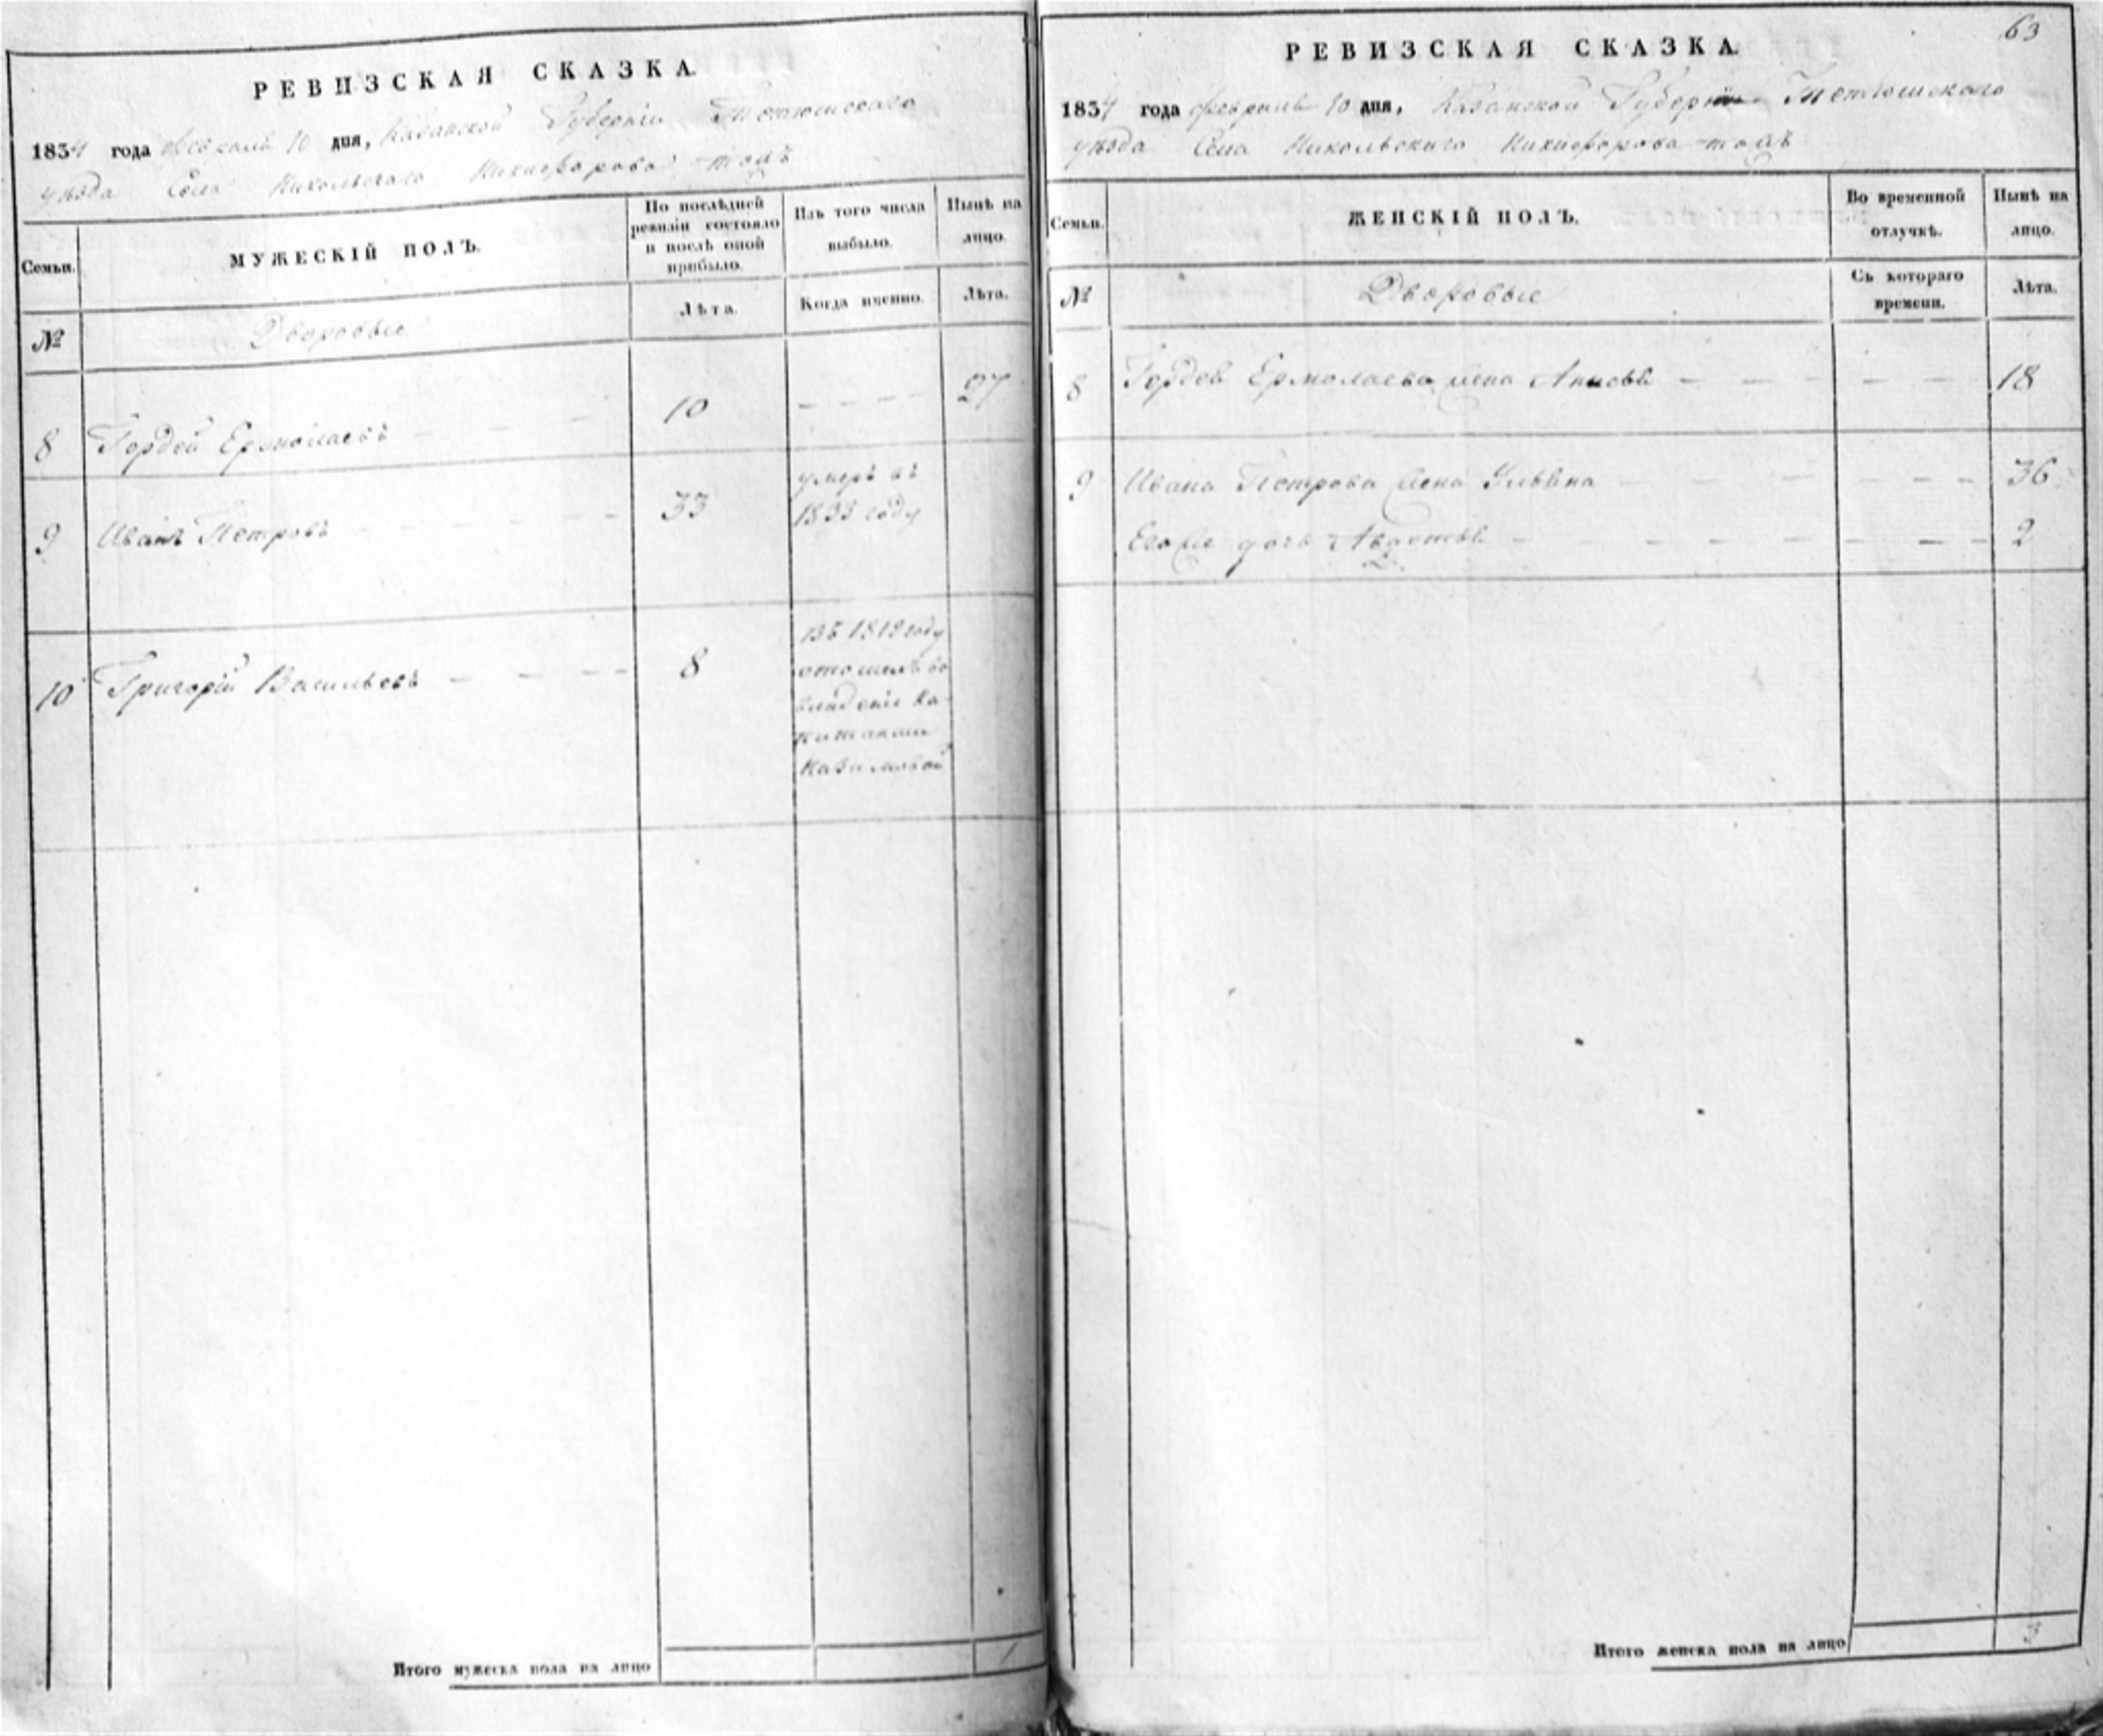 РЕВИЗСКАЯ СКАЗКА.
1834 года февраля 10 дня, Казанской Губернiи Тетюшскаго
уѣзда Села Никольскаго Никифорова тожъ
Семьи.
МУЖЕСКIЙ ПОЛЪ.
По послѣдней
ревизiи состояло
и послѣ оной
прибыло.
Изъ того числа
выбыло.
Нынѣ на
лицо.
№
Дворовые
Лѣта.
Когда именно.
Лѣта.
8 Гордей Ермолаевъ 10 27
9 Иванъ Петровъ 33 умеръ въ
1833 году
10 Григорiй Васильевъ 8 въ 1819 году
отошелъ во
владенiе Ка-
питанши
Казимовой
Итого мужеска пола на лицо 1
63
РЕВИЗСКАЯ СКАЗКА.
1834 года февраля 10 дня, Казанской Губернiи Тетюшскаго
уѣзда Села Никольскаго Никифорова тожъ
Семьи.
ЖЕНСКIЙ ПОЛЪ.
Во временной
отлучкѣ.
Нынѣ на
лицо.
№
Дворовые
Съ котораго
времени.
Лѣта.
8 Гордея Ермолаева жена 18
9 Ивана Петрова жена Ульяна 36
Его же дочь Авдотья 2
Итого женска пола на лицо 3